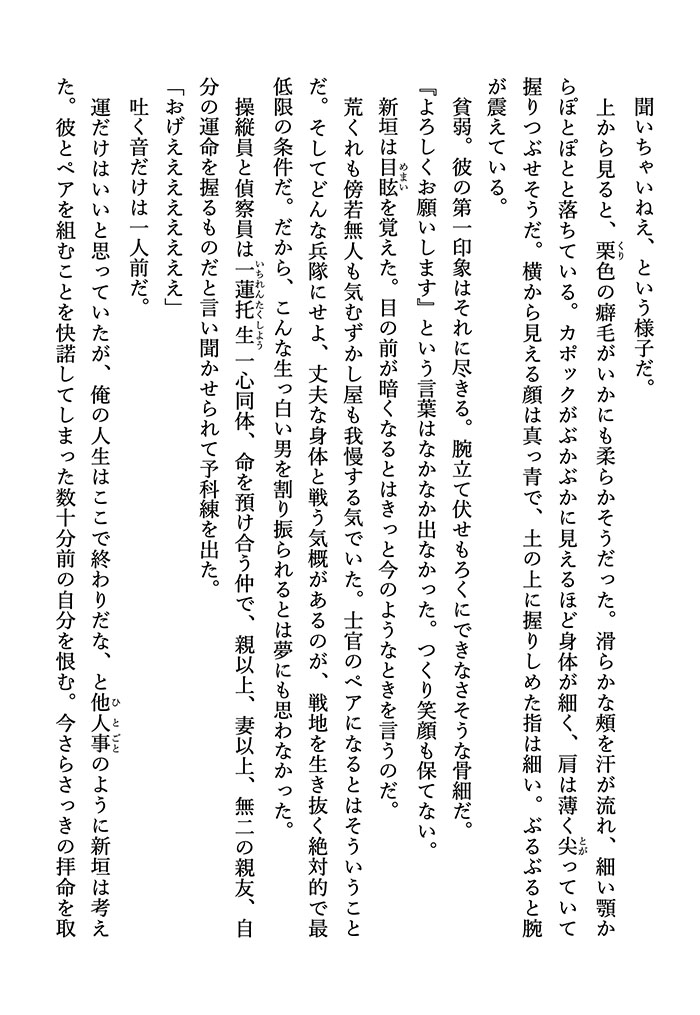 聞いちゃいねえ、という様子だ。
上から見ると、栗色の癖毛がいかにも柔らかそうだった。滑らかな頰を汗が流れ、細い顎か
らぽとぽとと落ちている。カポックがぶかぶかに見えるほど身体が細く、肩は薄く尖っていて
握りつぶせそうだ。横から見える顔は真っ青で、土の上に握りしめた指は細い。ぶるぶると腕
が震えている。
貧弱。彼の第一印象はそれに尽きる。腕立て伏せもろくにできなさそうな骨細だ。
『よろしくお願いします』という言葉はなかなか出なかった。つくり笑顔も保てない。
新垣は目眩を覚えた。目の前が暗くなるとはきっと今のようなときを言うのだ。
荒くれも傍若無人も気むずかし屋も我慢する気でいた。士官のペアになるとはそういうこと
だ。そしてどんな兵隊にせよ、丈夫な身体と戦う気概があるのが、戦地を生き抜く絶対的で最
低限の条件だ。だから、こんな生っ白い男を割り振られるとは夢にも思わなかった。
操縦員と偵察員は一蓮托生一心同体、命を預け合う仲で、親以上、妻以上、無二の親友、自
分の運命を握るものだと言い聞かせられて予科練を出た。
「おげえええええええ」
吐く音だけは一人前だ。
運だけはいいと思っていたが、俺の人生はここで終わりだな、と他人事のように新垣は考え
た。彼とペアを組むことを快諾してしまった数十分前の自分を恨む。今さらさっきの拝命を取